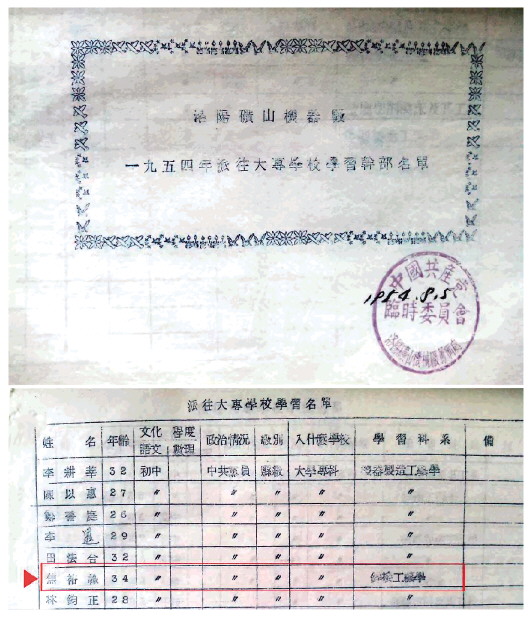 洛陽礦山機器廠
一九五四年派往大專學校學習幹部名單
中國共產黨
臨時委員會
1954.8.5
派往大專學校學習名單
姓名 年齡 文化程度 語文 數理 政治情況 級別 入什麼學校 學習科系 備
李耕華 32 初中 中共黨員 縣級 大學專科 機器製造工藝學
陳以惠 27 〃 〃 〃 〃 〃
26 〃 〃 〃 〃 〃
李 29 〃 〃 〃 〃 〃
田法台 32 〃 〃 〃 〃 〃
焦裕祿 34 〃 〃 〃 〃 工藝學
林鈞正 28 〃 〃 〃 〃 〃